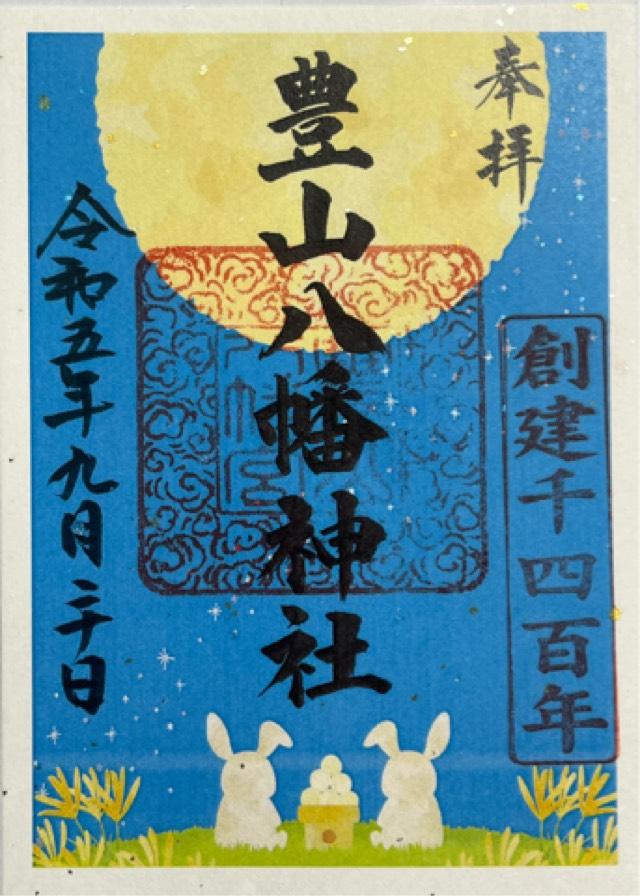 奉拝
創建千四百年
豊山八幡神社
令和五年九月二十日